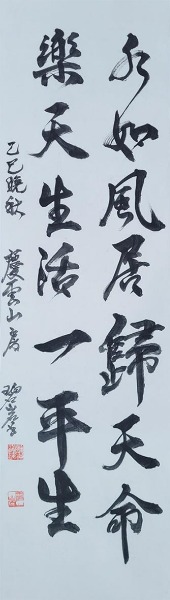 水如風居歸天命
樂天生活一平生
乙巳晚秋 雲山房 碧峯